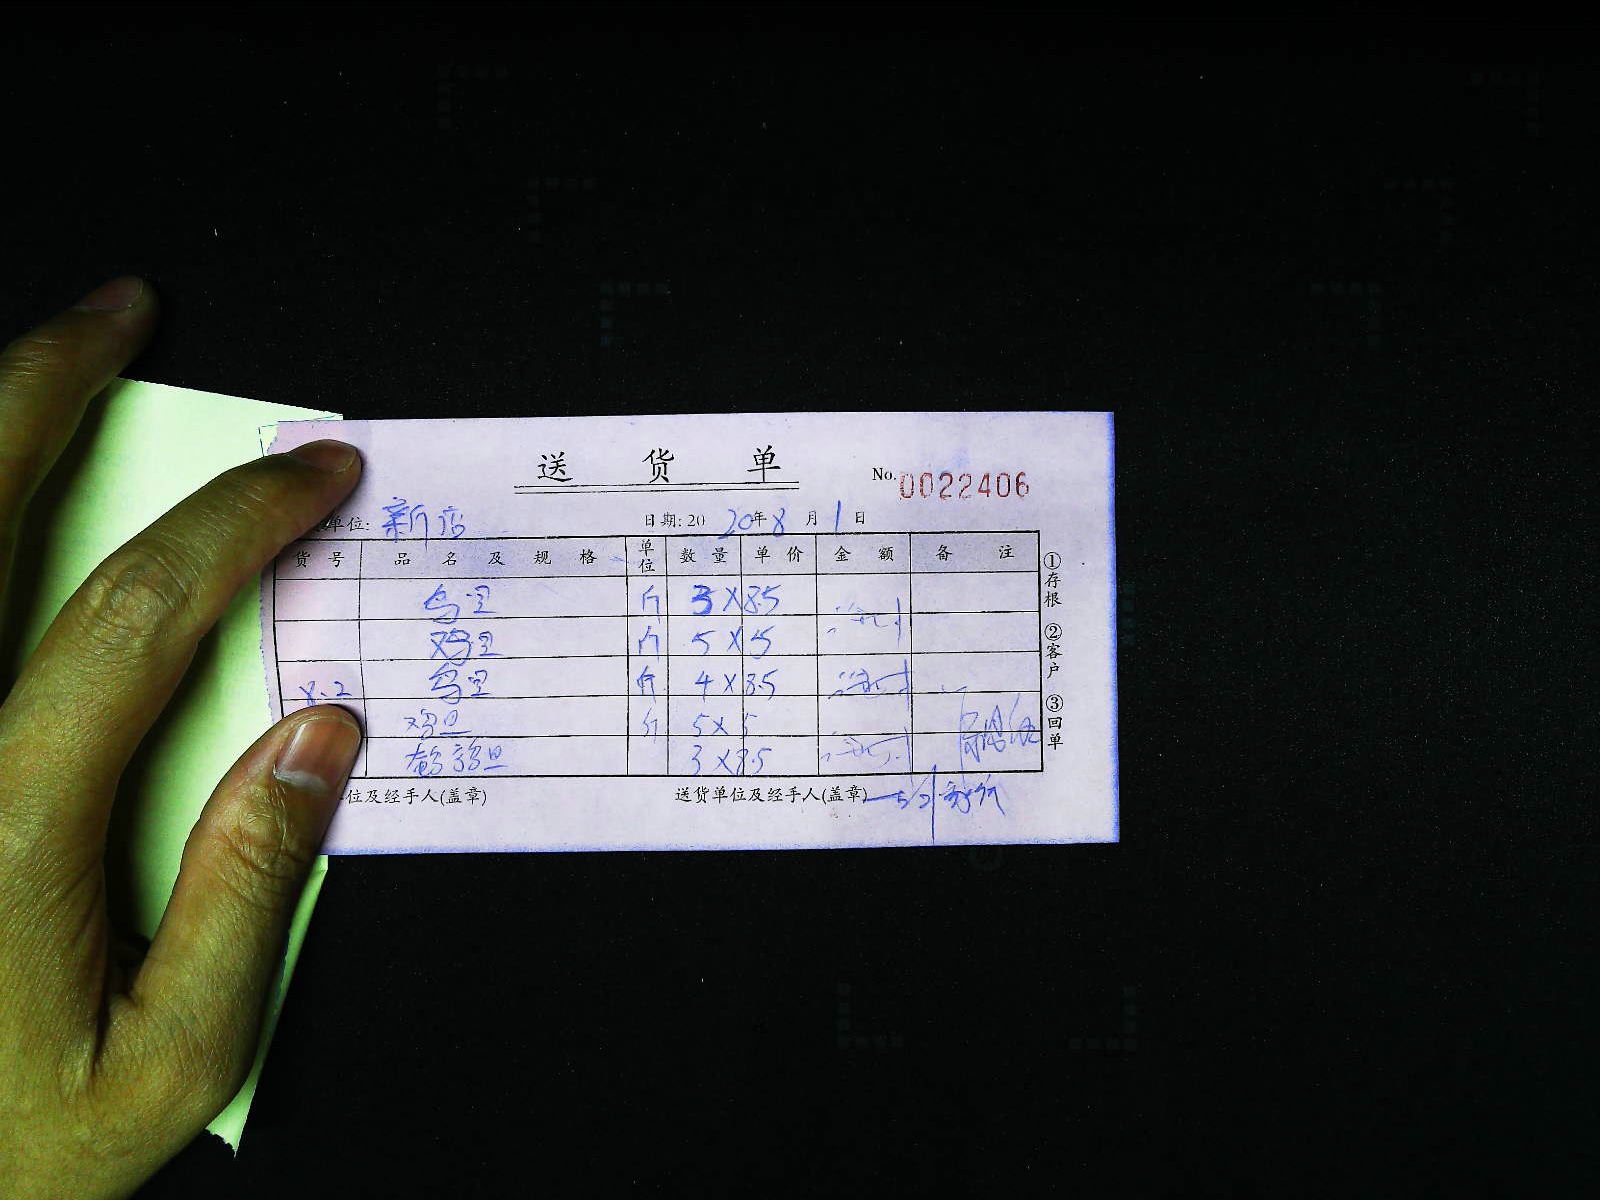 送 货 单
No. 0022406
单位: 新店 日期: 2020年8月1日
货号 品名及规格 单位 数量 单价 金额 备注
鸟旦 斤 3 X 8.5
鸡旦 斤 5 X 5
8.2 鸟旦 斤 4 X 8.5
鸡旦 斤 5 X 5
鹌鹑旦 3 X 8.5
位及经手人(盖章) 送货单位及经手人(盖章)
①存根 ②客户 ③回单